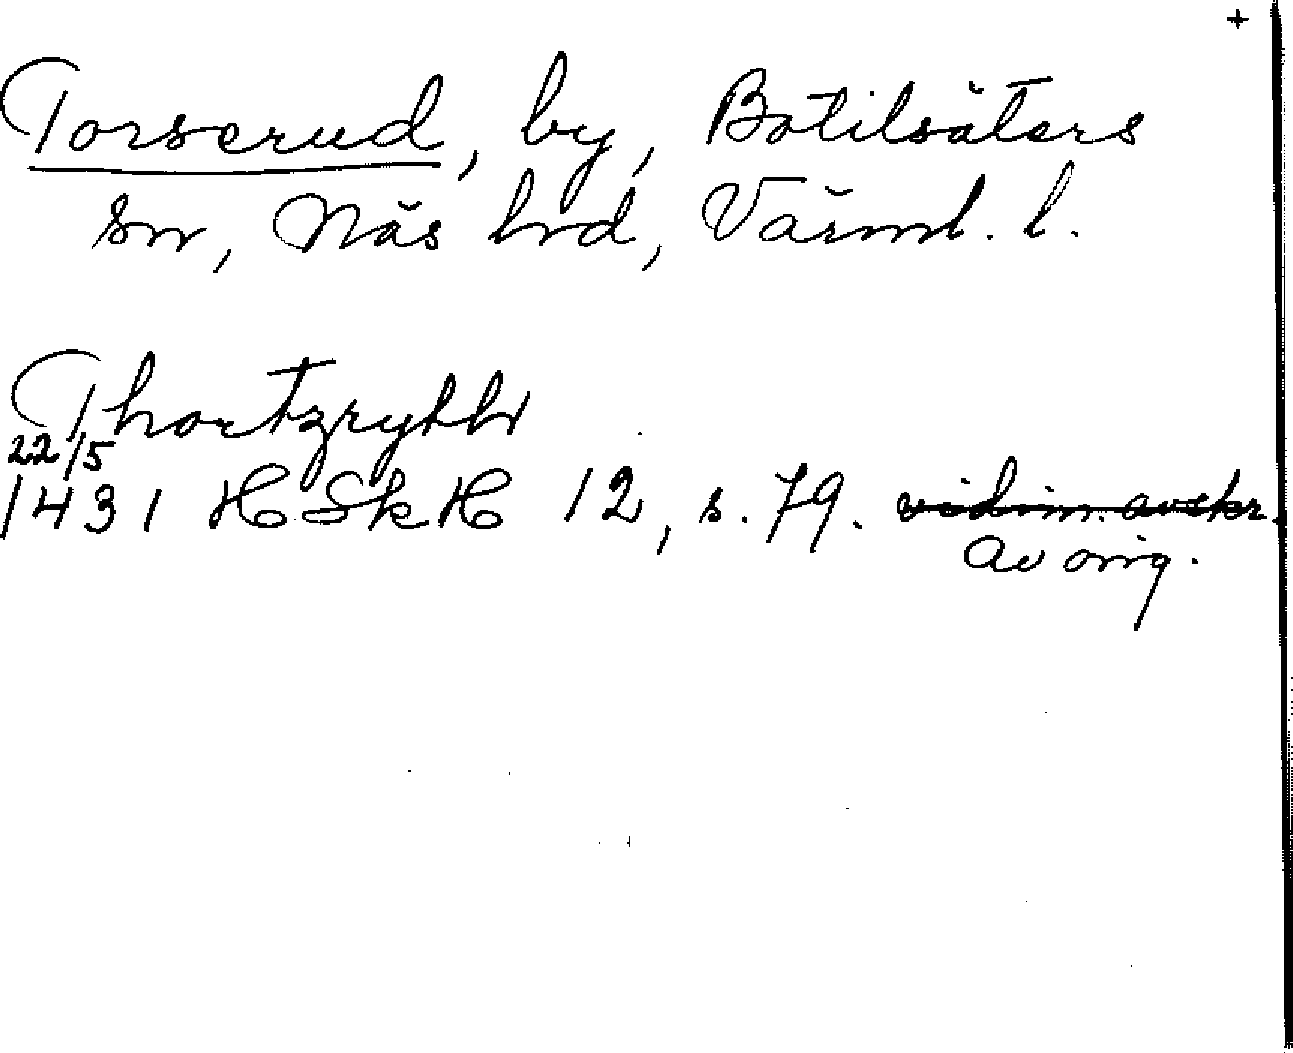 +
Torserud, by, Botilsäters
sn, Näs hrd, Värml. l.
Thortzrydh
22/5
1431 HSkH 12, s. 79. vidim. avskr.
Av orig.